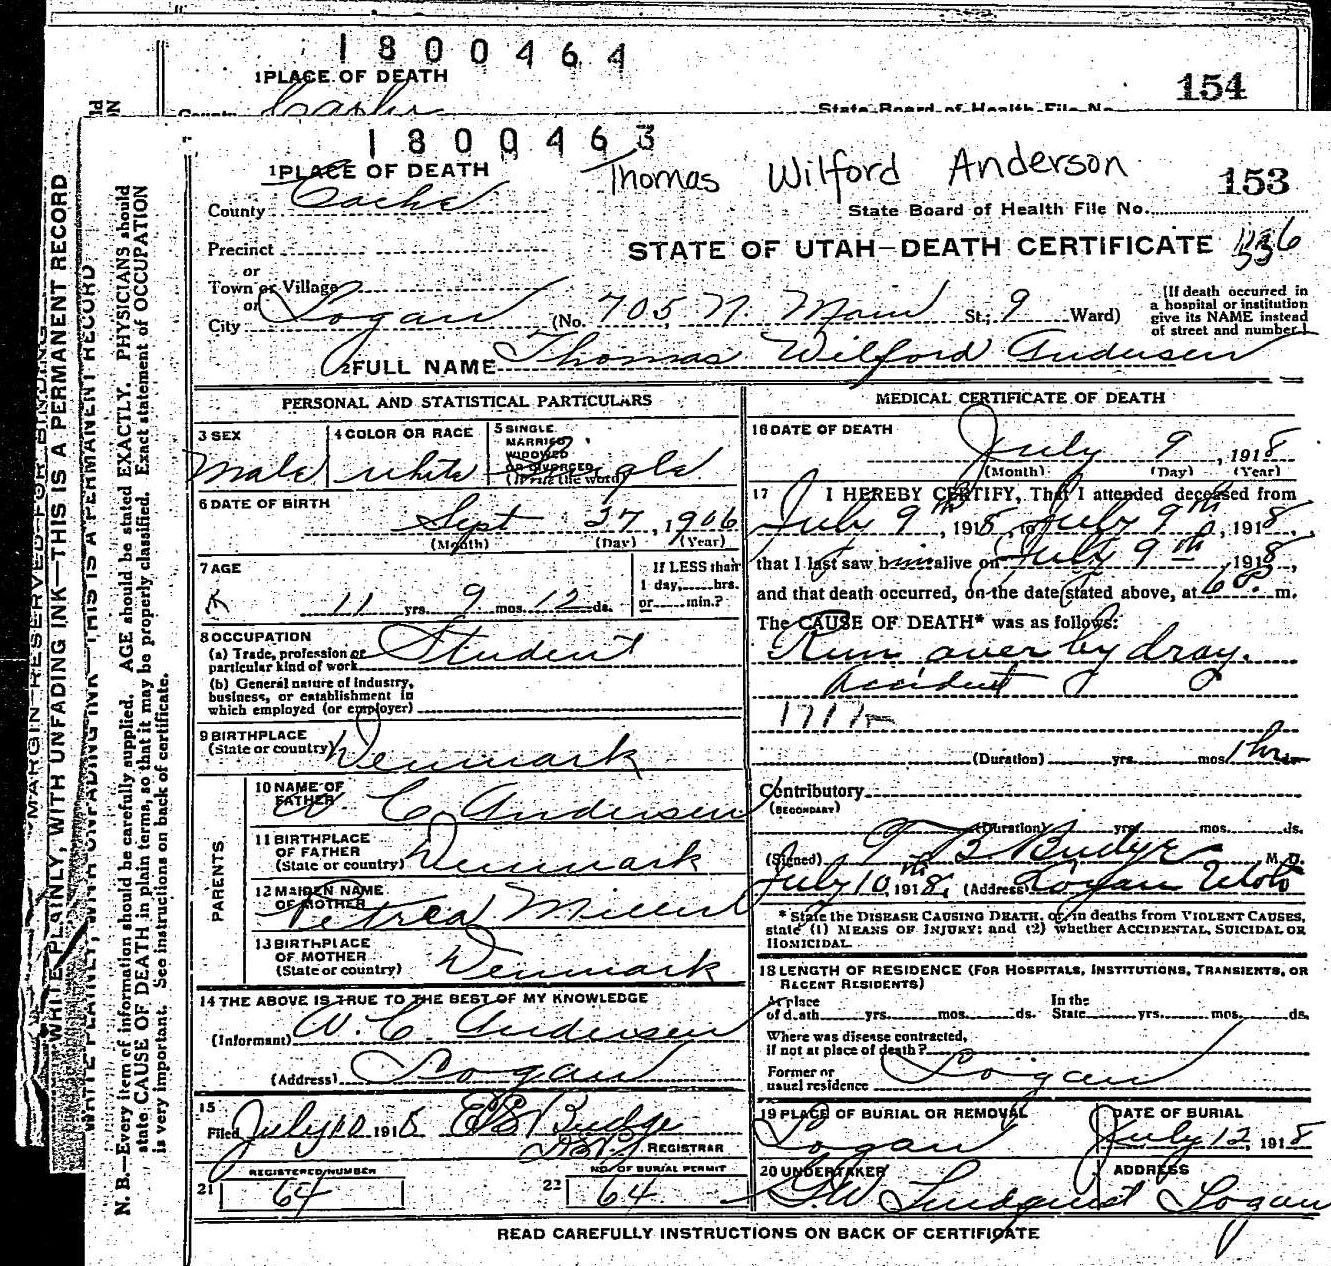 1800464
1 PLACE OF DEATH
154
County Cache
State Board of Health File No.
1800463
1 PLACE OF DEATH
Thomas Wilford Anderson
153
County Cache
State Board of Health File No.
Precinct
STATE OF UTAH—DEATH CERTIFICATE
or
Town or Village
or
City Logan (No. 705 N Main St.; 9 Ward)
[If death occurred in
a hospital or institution
give its NAME instead
of street and number.]
2 FULL NAME Thomas Wilford Andersen
PERSONAL AND STATISTICAL PARTICULARS
3 SEX
Male
4 COLOR OR RACE
white
5 SINGLE
MARRIED
WIDOWED
OR DIVORCED
(Write the word)
Single
6 DATE OF BIRTH
Sept 27, 1906
(Month) (Day) (Year)
7 AGE
11 yrs. 9 mos. 12 ds.
If LESS than
1 day, hrs.
or min.?
8 OCCUPATION
(a) Trade, profession or
particular kind of work Student
(b) General nature of industry,
business, or establishment in
which employed (or employer)
9 BIRTHPLACE
(State or country) Denmark
PARENTS
10 NAME OF
FATHER W C Andersen
11 BIRTHPLACE
OF FATHER
(State or country) Denmark
12 MAIDEN NAME
OF MOTHER Petrea
13 BIRTHPLACE
OF MOTHER
(State or country) Denmark
14 THE ABOVE IS TRUE TO THE BEST OF MY KNOWLEDGE
(Informant) W. C. Andersen
(Address) Logan
15
Filed July 10 1918 Budge
REGISTRAR
REGISTERED NUMBER
21 64
NO. OF BURIAL PERMIT
22 64
MEDICAL CERTIFICATE OF DEATH
16 DATE OF DEATH
July 9, 1918
(Month) (Day) (Year)
17 I HEREBY CERTIFY, That I attended deceased from
July 9th, 1918, to July 9th, 1918,
that I last saw him alive on July 9th 1918,
and that death occurred, on the date stated above, at 6 m.
The CAUSE OF DEATH* was as follows:
Run over by dray.
Accident
(Duration) yrs. mos. 1 hr.
Contributory
(SECONDARY)
(Duration) yrs. mos. ds.
(Signed) T B Budge M. D.
July 10th, 1918. (Address) Logan Utah
* State the DISEASE CAUSING DEATH, or, in deaths from VIOLENT CAUSES,
state (1) MEANS OF INJURY; and (2) whether ACCIDENTAL, SUICIDAL OR
HOMICIDAL.
18 LENGTH OF RESIDENCE (FOR HOSPITALS, INSTITUTIONS, TRANSIENTS, OR
RECENT RESIDENTS)
At place
of death yrs. mos. ds.
In the
State yrs. mos. ds.
Where was disease contracted,
if not at place of death?
Former or
usual residence Logan
19 PLACE OF BURIAL OR REMOVAL
Logan
DATE OF BURIAL
July 12, 1918
20 UNDERTAKER
G.W. Lindquist
ADDRESS
Logan
READ CAREFULLY INSTRUCTIONS ON BACK OF CERTIFICATE
MARGIN RESERVED FOR BINDING
WRITE PLAINLY, WITH UNFADING INK—THIS IS A PERMANENT RECORD
WRITE PLAINLY, WITH UNFADING INK—THIS IS A PERMANENT RECORD
N. B.—Every item of information should be carefully supplied. AGE should be stated EXACTLY. PHYSICIANS should
state CAUSE OF DEATH in plain terms, so that it may be properly classified. Exact statement of OCCUPATION
is very important. See instructions on back of certificate.